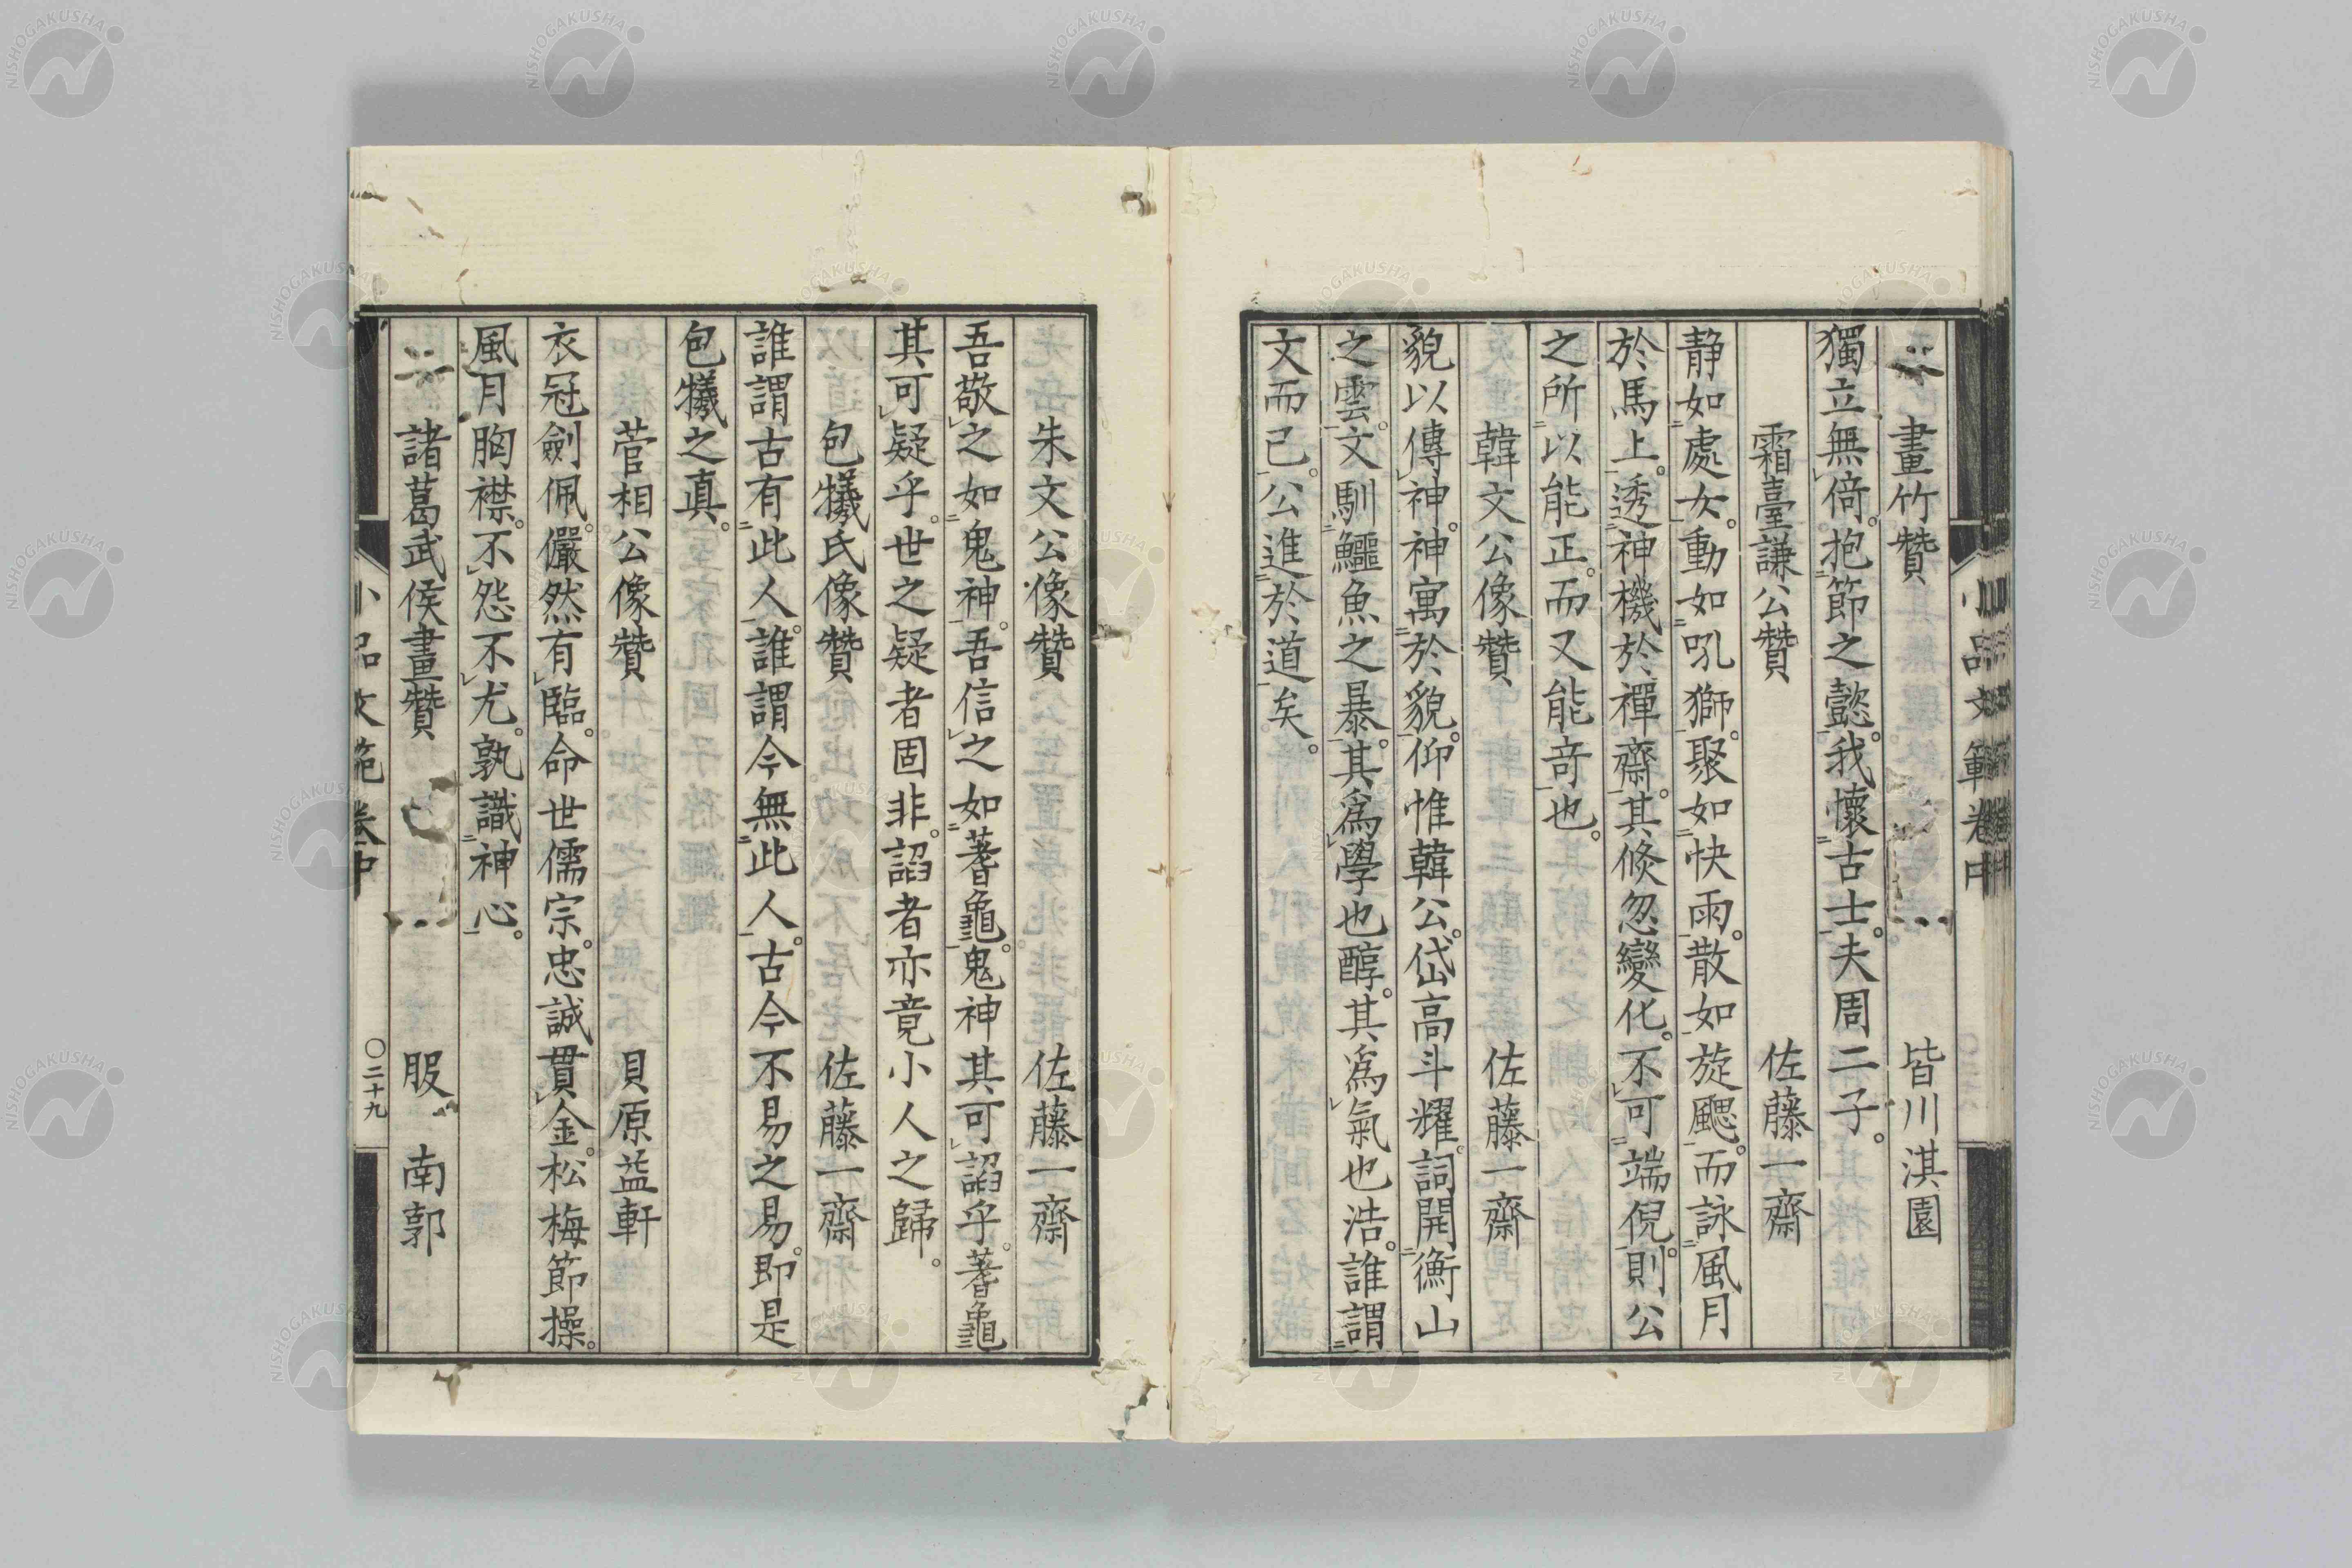 畫竹贊 皆川淇園
獨立無倚。抱節之懿。我懷古士。夫周二子。
霜臺謙公贊 佐藤一齋
静如處女。動如吼獅。聚如快雨。散如旋颸。而詠風月
於馬上。透神機於禪齋。其倐忽變化。不可端倪。則公
之所以能正。而又能奇也。
韓文公像贊 佐藤一齋
貌以傳神。神寓於貌。仰惟韓公。岱高斗耀。詞開衡山
之雲。文馴鱷魚之暴。其爲學也醇。其爲氣也浩。誰謂
文而已。公進於道矣。
小品文範卷中
朱文公像贊 佐藤一齋
吾敬之如鬼神。吾信之如蓍龜。鬼神其可謟乎。蓍龜
其可疑乎。世之疑者固非。謟者亦竟小人之歸。
包犧氏像贊 佐藤一齋
誰謂古有此人。誰謂今無此人。古今不易之易。即是
包犧之真。
菅相公像贊 貝原益軒
衣冠劍佩。儼然有臨。命世儒宗。忠誠貫金。松梅節操。
風月胸襟。不怨不尤。孰識神心。
諸葛武侯畫贊 服 南郭
小品文範卷中 〇二十九
NISHOGAKUSHA